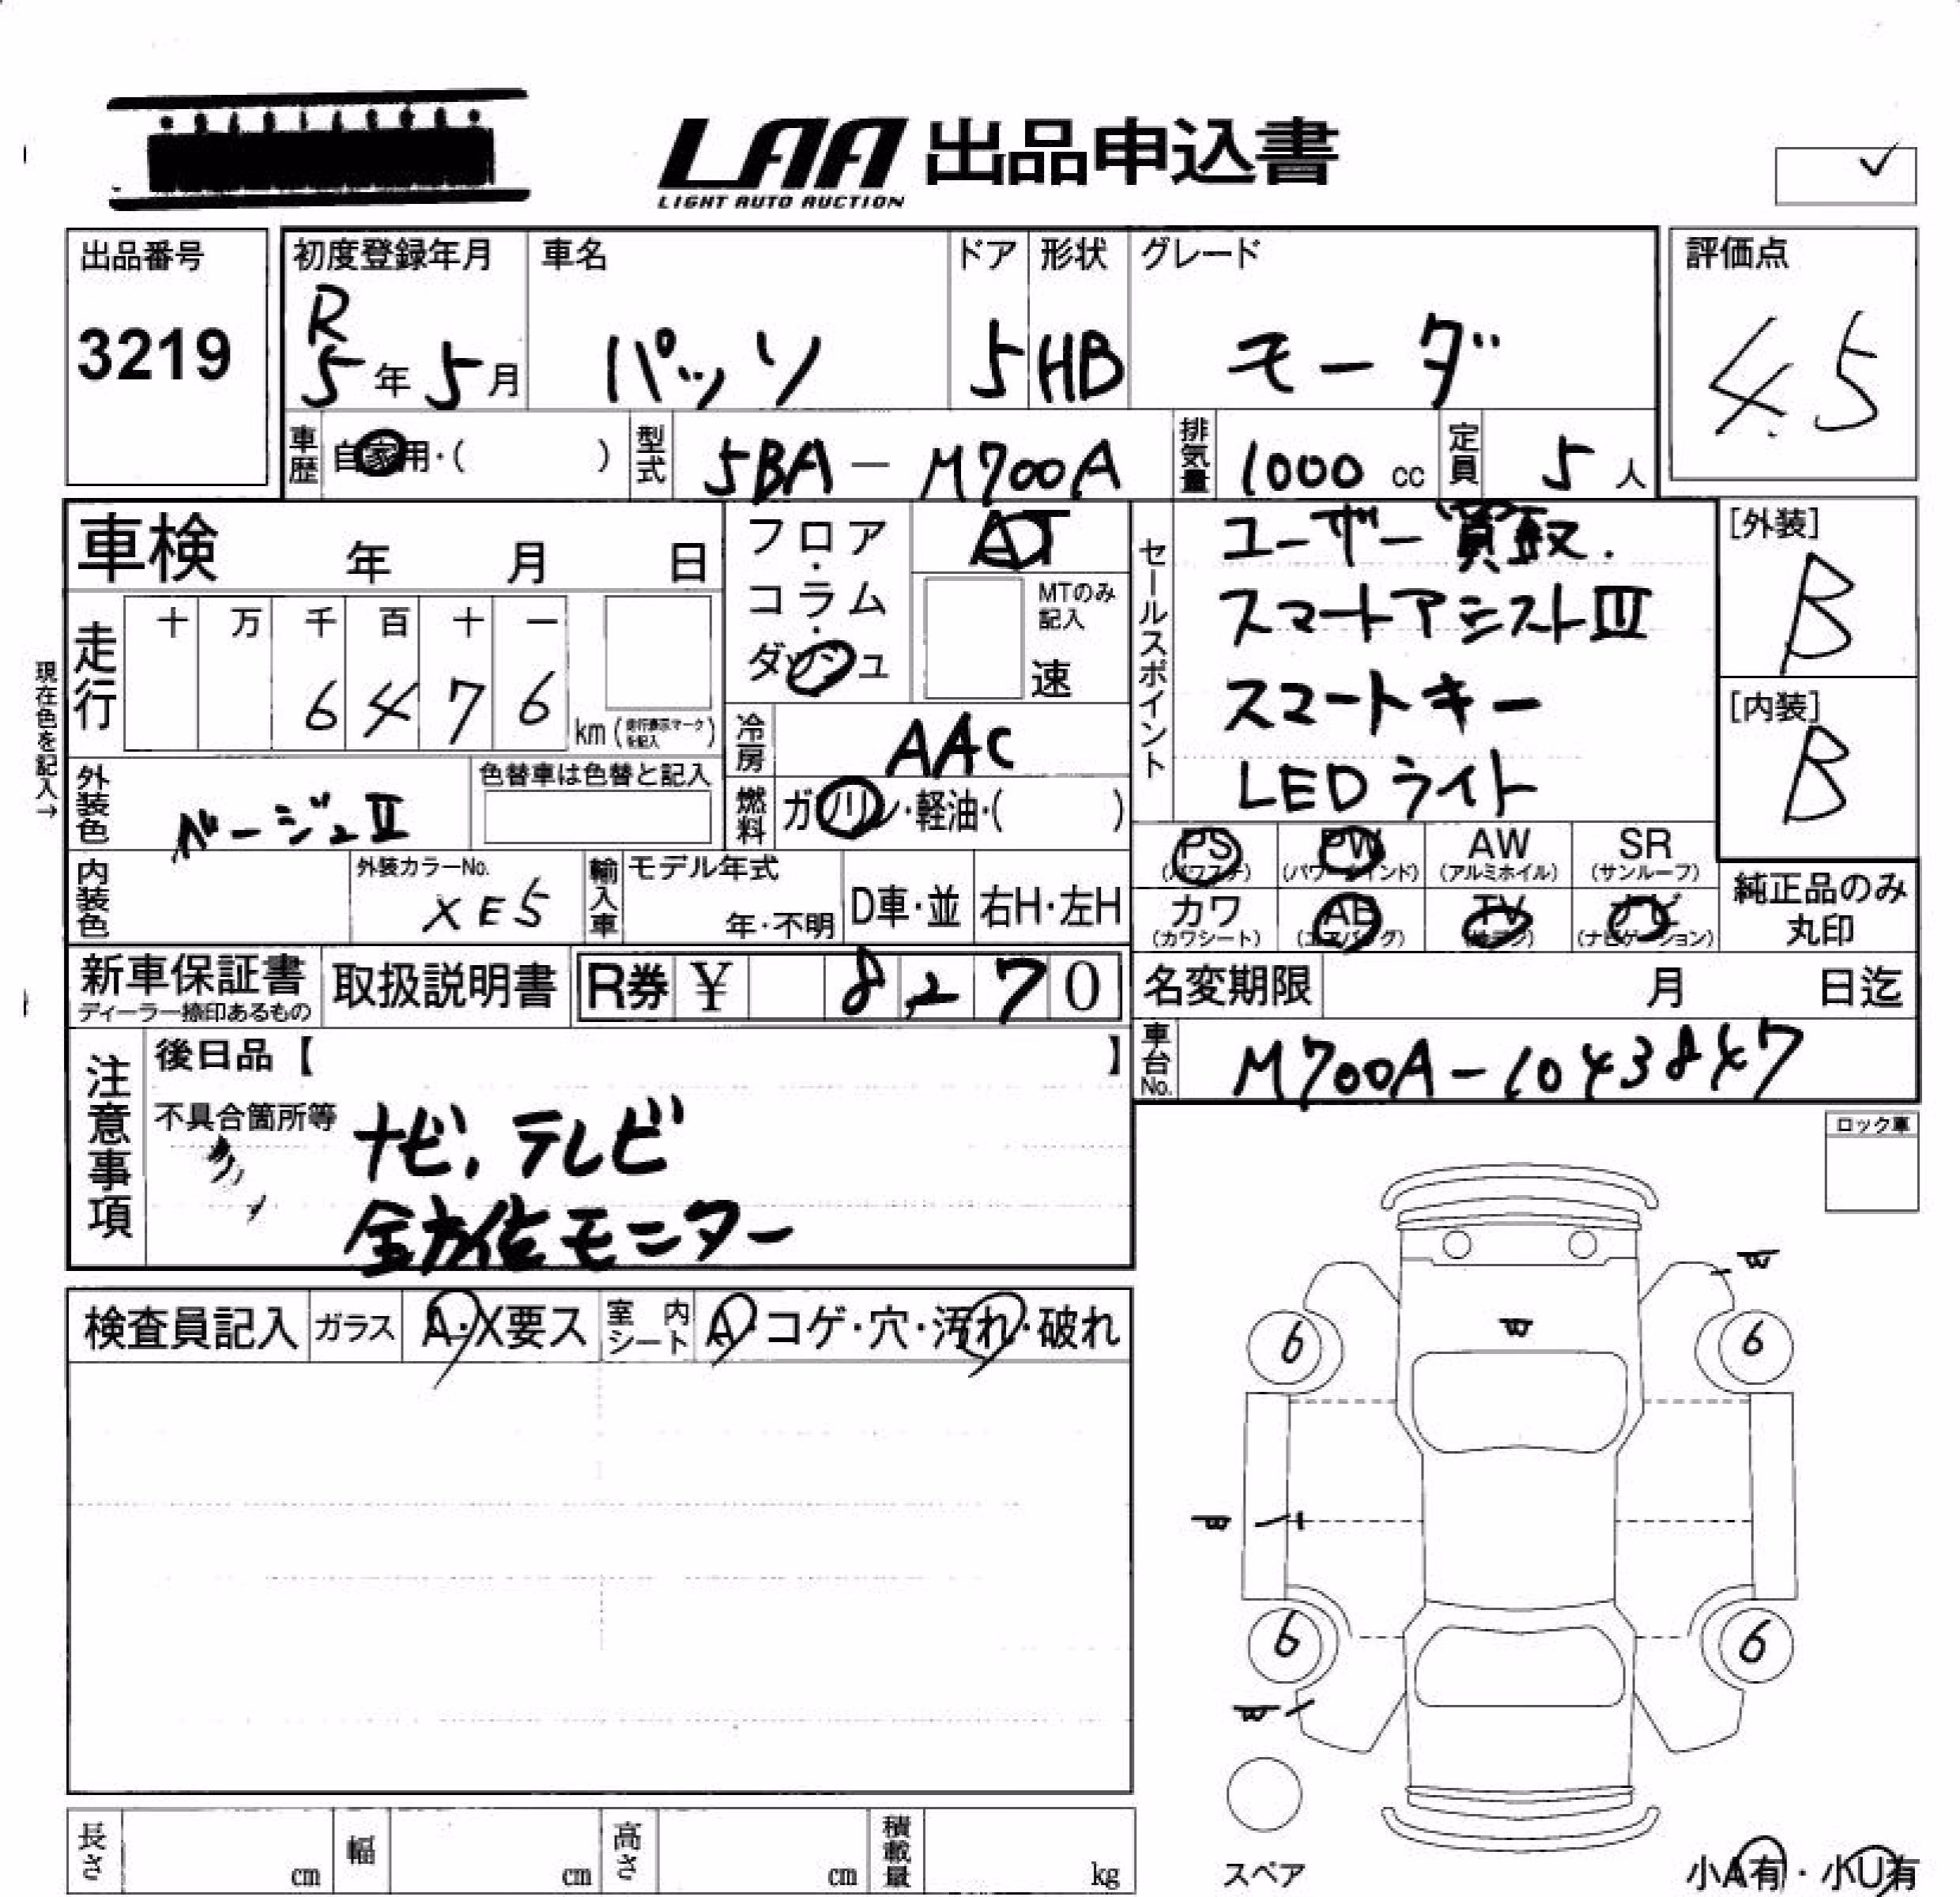 LAA 出品申込書
LIGHT AUTO AUCTION
出品番号
3219
初度登録年月
R
5年5月
車名
パッソ
ドア
5
形状
HB
グレード
モーダ
評価点
4.5
車歴
自家用・( )
型式
5BA-M700A
排気量
1000 cc
定員
5人
車検 年 月 日
現在色を記入→
走行
十 万 千 百 十 一
6 4 7 6
km(走行表示マークを記入)
フロア・コラム・ダッシュ
AT
MTのみ記入
速
冷房
AAC
燃料
ガソリン・軽油・( )
セールスポイント
ユーザー買取.
スマートアシストⅢ
スマートキー
LEDライト
[外装]
B
[内装]
B
外装色
ベージュⅡ
色替車は色替と記入
内装色
外装カラーNo.
XE5
輸入車
モデル年式
年・不明
D車・並
右H・左H
PS (パワステ)
PW (パワーウインド)
AW (アルミホイル)
SR (サンルーフ)
カワ (カワシート)
AB (エアバッグ)
TV (テレビ)
ナビ (ナビゲーション)
純正品のみ
丸印
新車保証書
ディーラー捺印あるもの
取扱説明書
R券 ¥ 8270
名変期限 月 日迄
車台No.
M700A-1043847
注意事項
後日品【 】
不具合箇所等
ナビ, テレビ
全方位モニター
ロック車
検査員記入
ガラス
A・X要ス
室内シート
A・コゲ・穴・汚れ・破れ
6
6
6
6
スペア
小A有・小U有
長さ cm
幅 cm
高さ cm
積載量 kg